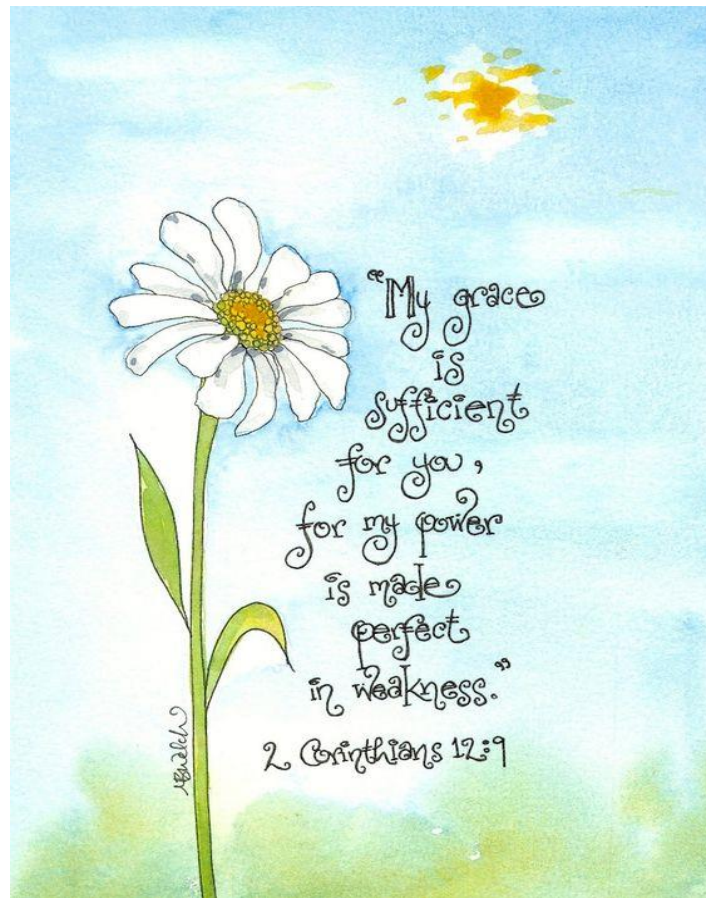 “My grace
is
sufficient
for you,
for my power
is made
perfect
in weakness.”
2 Corinthians 12:9